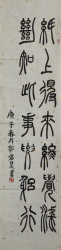 紙上得來終覺淺
絕知此事要躬行
庚子春月